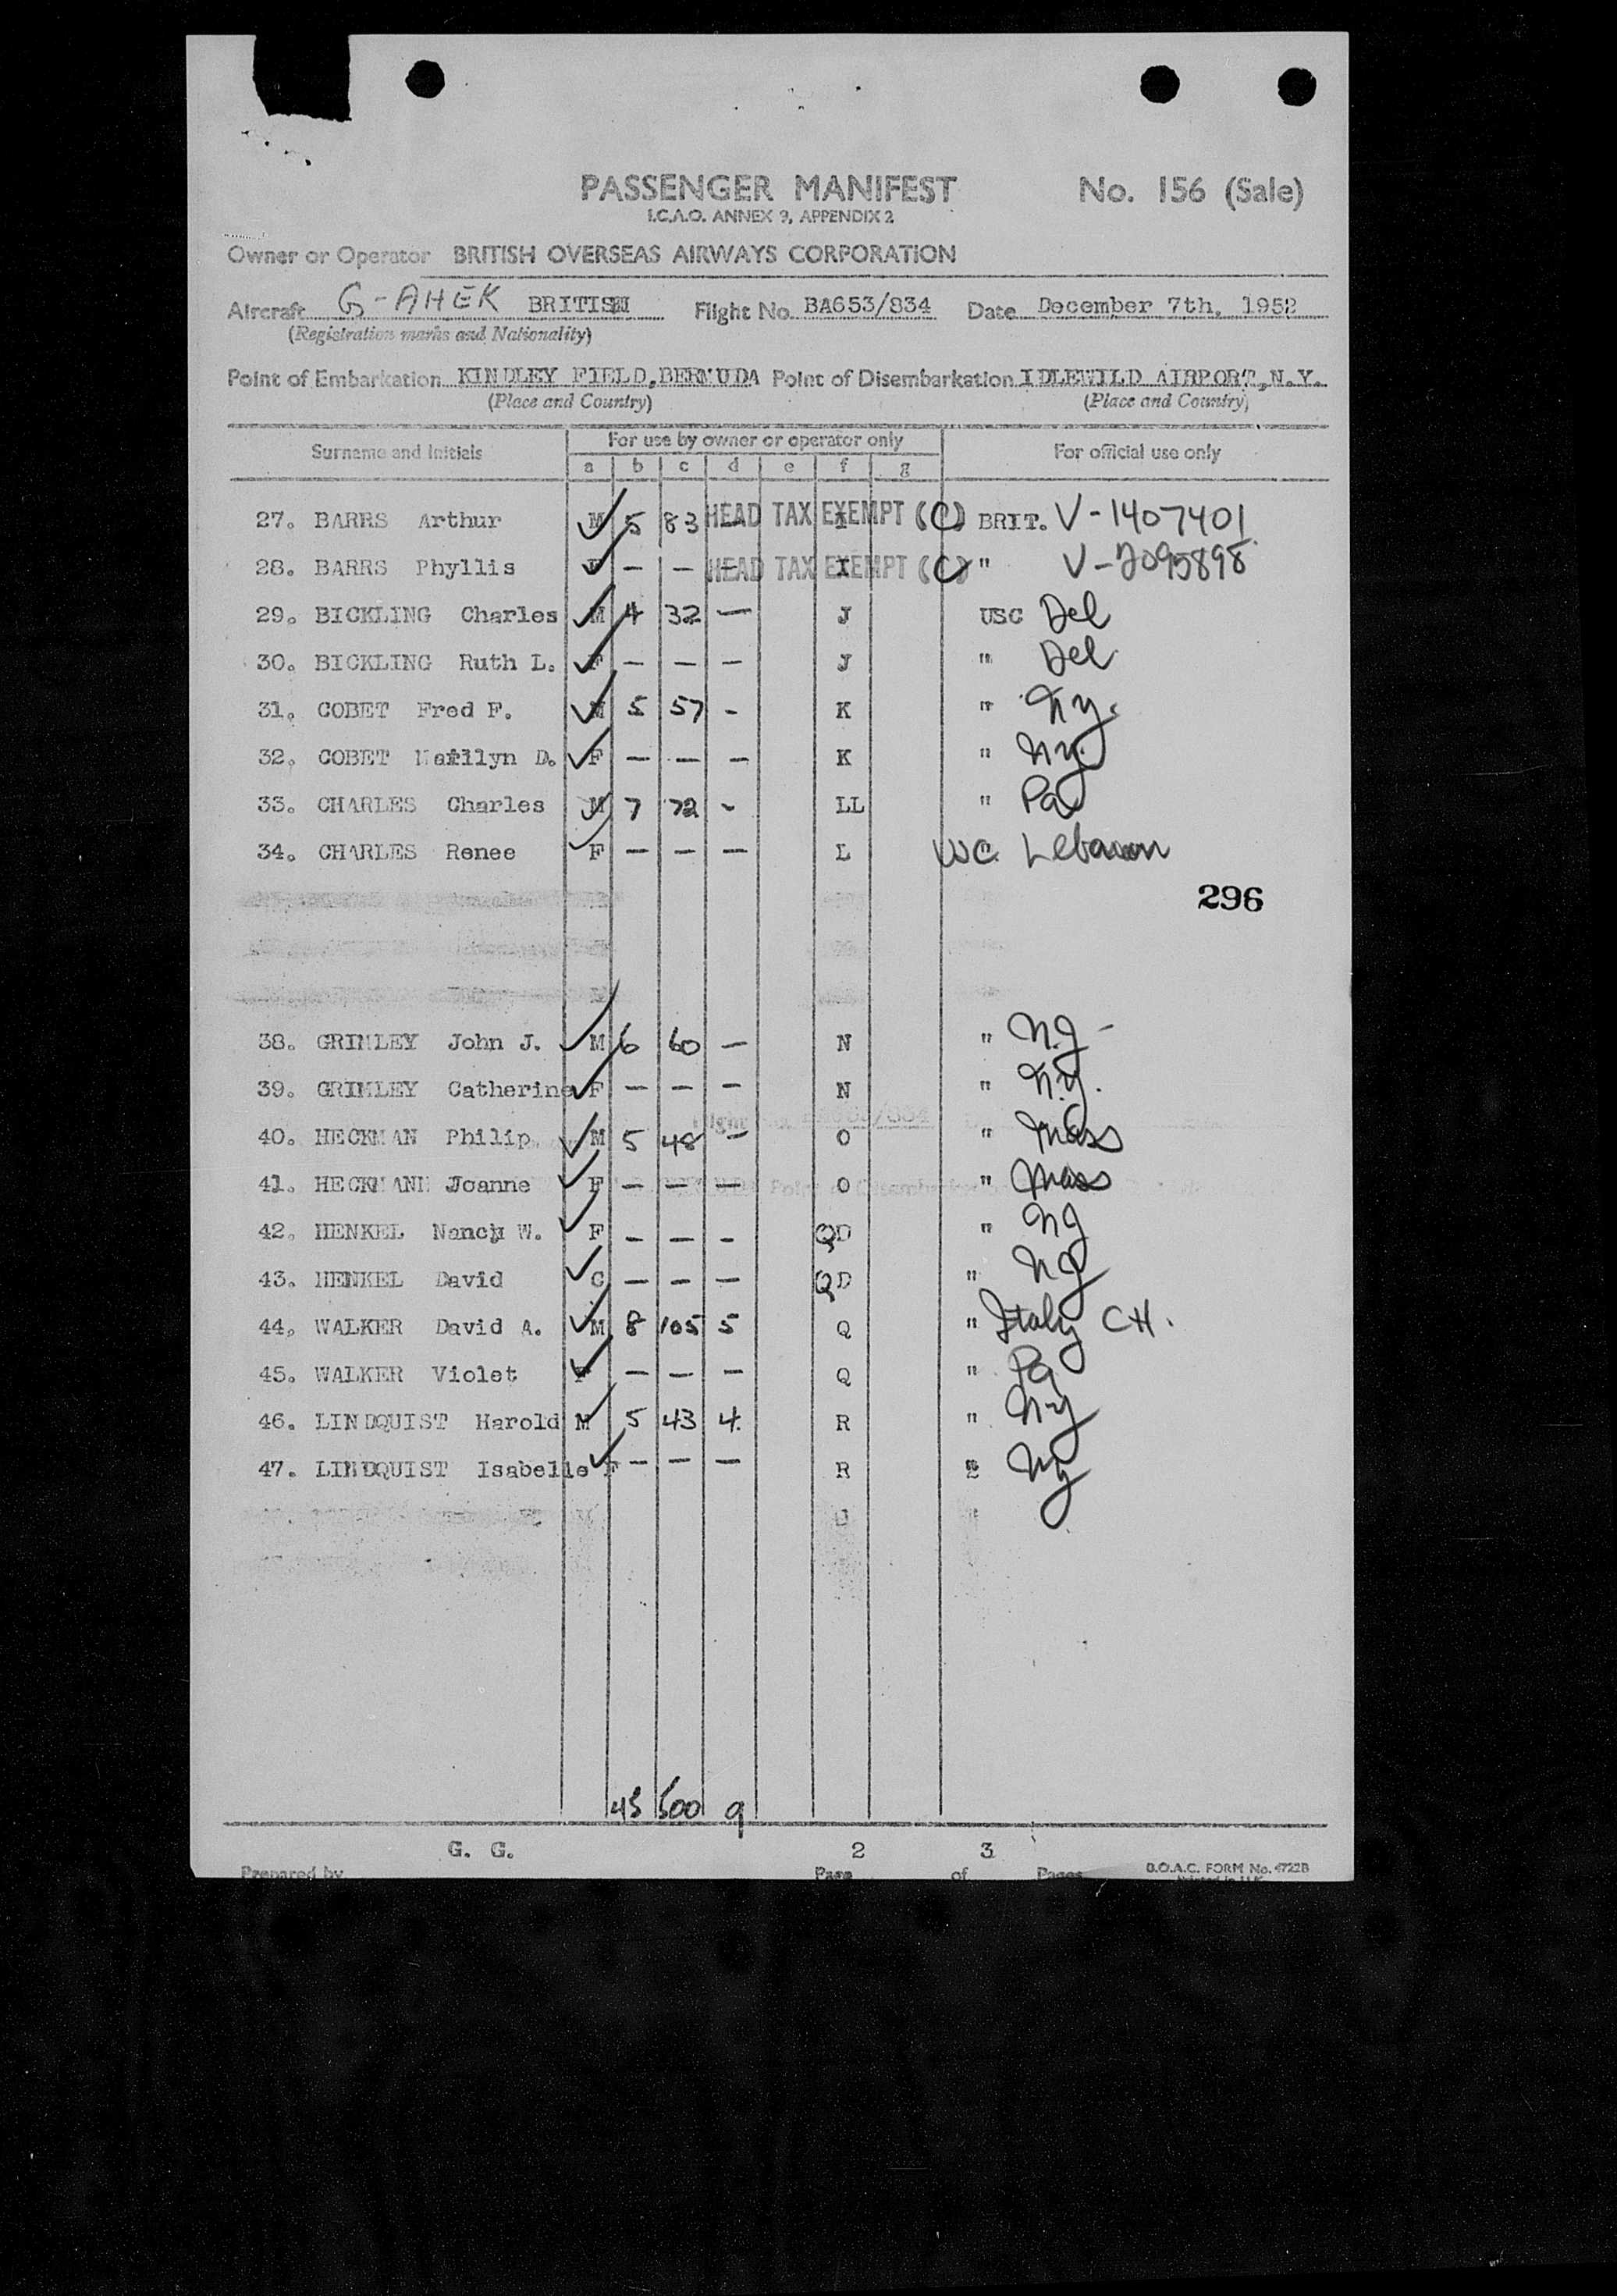 PASSENGER MANIFEST No. 156 (Sale)
I.C.A.O. ANNEX 9, APPENDIX 2
Owner or Operator BRITISH OVERSEAS AIRWAYS CORPORATION
Aircraft G-AHEK BRITISH Flight No. BA653/834 Date December 7th, 1952
(Registration marks and Nationality)
Point of Embarkation KINDLEY FIELD, BERMUDA Point of Disembarkation IDLEWILD AIRPORT, N.Y.
(Place and Country) (Place and Country)
Surname and Initials For use by owner or operator only For official use only
a b c d e f g
27. BARRS Arthur M 5 83 — HEAD TAX EXEMPT (C) I BRIT. V-1407401
28. BARRS Phyllis F — — — HEAD TAX EXEMPT (C) I " V-2095898
29. BICKLING Charles M 4 32 — J USC Del
30. BICKLING Ruth L. F — — — J " Del
31. COBET Fred F. M 5 57 - K " Ny.
32. COBET Marilyn D. F — — — K " Ny.
33. CHARLES Charles M 7 72 - LL " Pa
34. CHARLES Renee F — — — L Lebanon
296
38. GRIMLEY John J. M 6 60 — N " N.J -
39. GRIMLEY Catherine F — — — N " N.y.
40. HECKMAN Philip M 5 48 — O " Mass
41. HECKMAN Joanne F — — — O " Mass
42. HENKEL Nancy W. F — — — QD " NJ
43. HENKEL David C — — — QD " NJ
44. WALKER David A. M 8 105 5 Q " Italy CH.
45. WALKER Violet F — — — Q " Pa
46. LINDQUIST Harold M 5 43 4. R " Ny
47. LINDQUIST Isabelle F — — — R " Ny
45 500 9
G. G. 2 3
Prepared by Page of Pages B.O.A.C. FORM No. 4722B